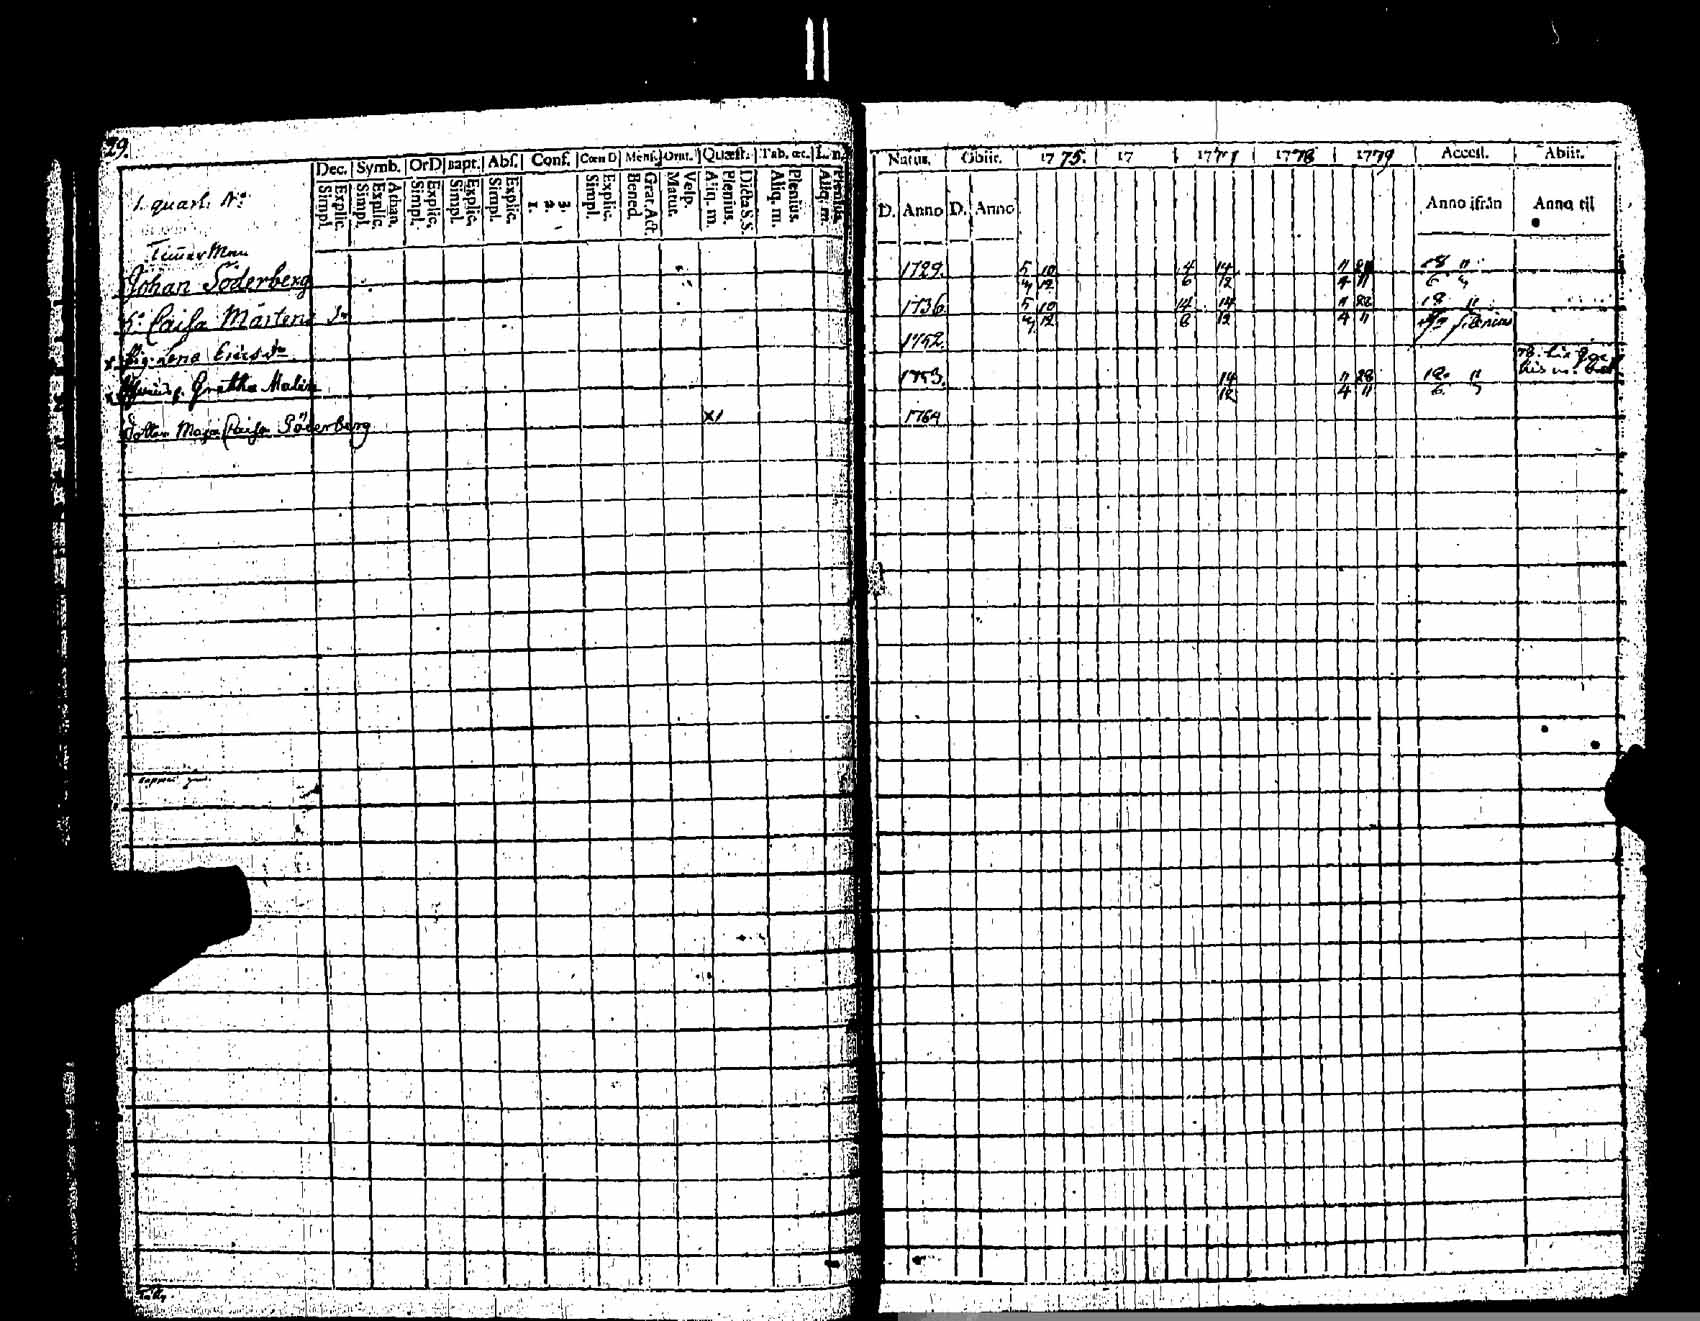 29.
Dec. Symb. OrD Bapt. Abſ. Conf. Cœn D Menſ. Orat. Quæſt. Tab. œc.
Simpl. Explic. Simpl. Explic. Athan. Simpl. Explic. Simpl. Explic. Simpl. Explic. 1. 2. 3. Simpl. Explic. Bened. Grat. Act. Matut. Veſp. Aliq. m. Plenius. Dicta S. S. Aliq. m. Plenius. Aliq. m. Plenius.
1. quart. No
Timer Man
Johan Söderberg
h. Caisa Mårtens Dr
Pig. Lena Ericsdr
Gretha Malin
Dotter Maja Caisa Söderberg x1
Natus. Obiit. 1775. 17 1777 1778 1779 Acceſſ. Abiit.
D. Anno D. Anno Anno ifrån Anno til
1729. 5 10 4 14 11 21 18 11
4 12 6 12 4 11 6
1736 5 10 14 14 11 28 18 11
4 12 6 12 4 11
1752.
1753. 14 11 28 18. 11
12 4 11 6
1764